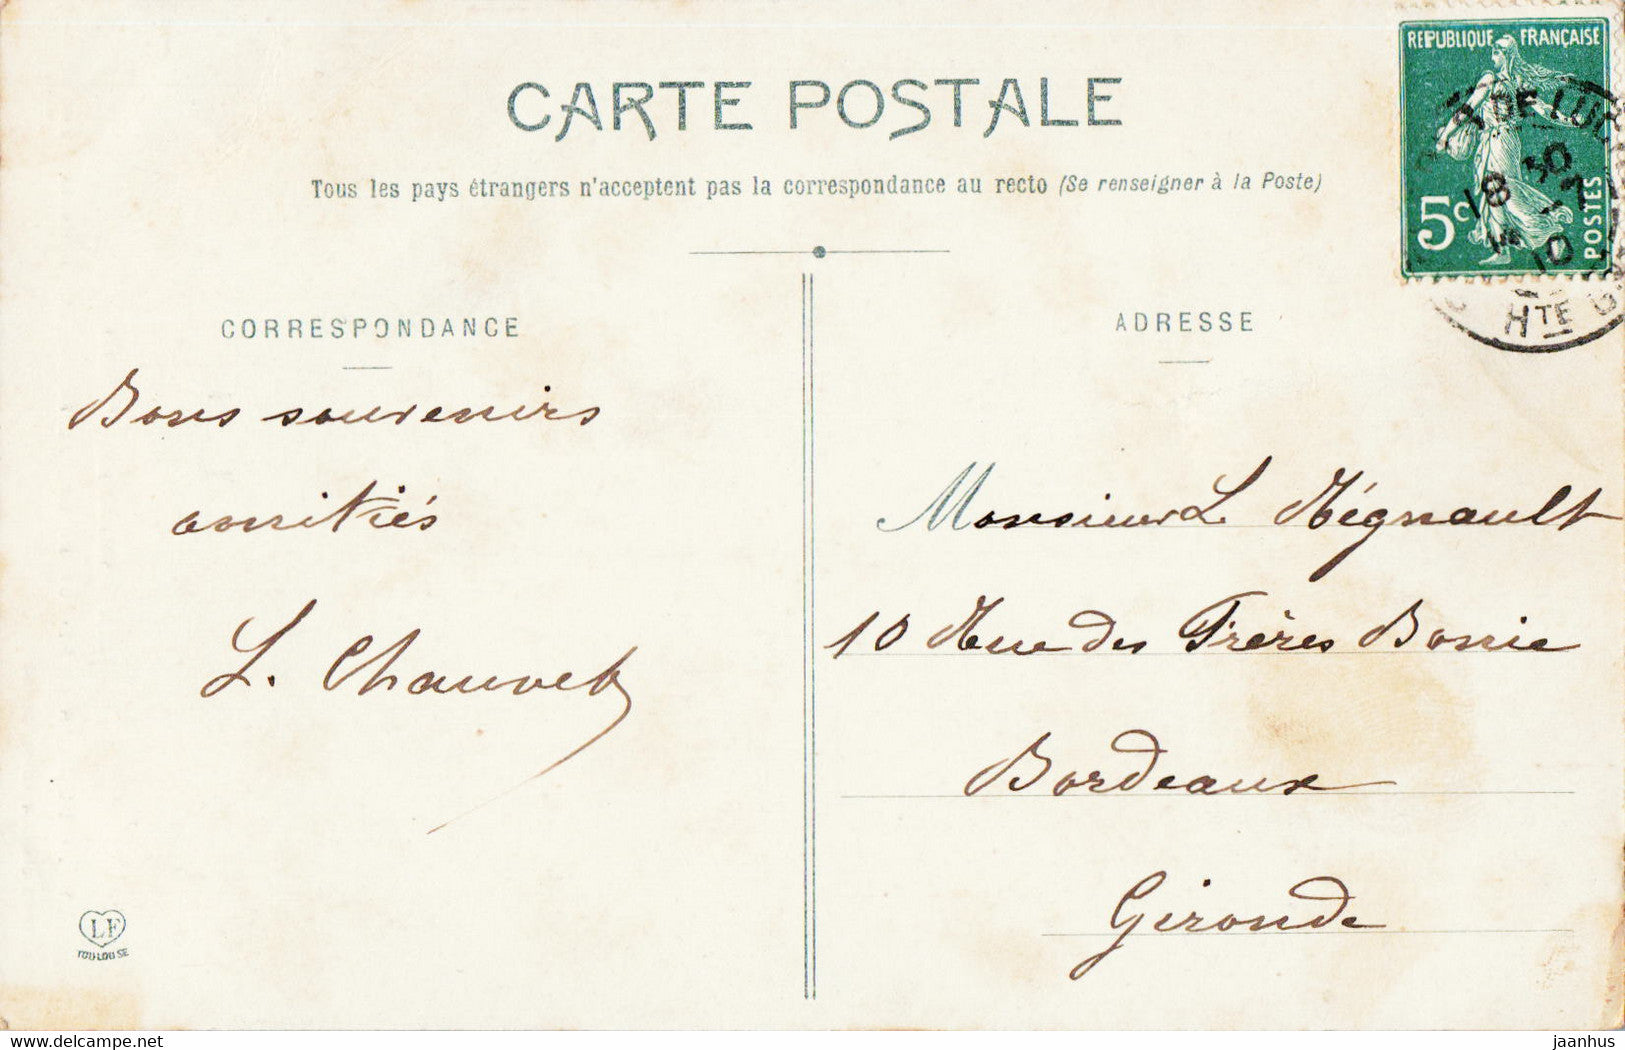 CARTE POSTALE
Tous les pays étrangers n'acceptent pas la correspondance au recto (Se renseigner à la Poste)
REPUBLIQUE FRANÇAISE
5c
POSTES
DE LUC
18 30
14 -7
10
HTE G
CORRESPONDANCE
Bons souvenirs
amitiés
L. Chauvet
ADRESSE
Monsieur L. Régnault
10 Rue des Frères Bonie
Bordeaux
Gironde
LF
TOULOUSE
eu.delcampe.net
jaanhus